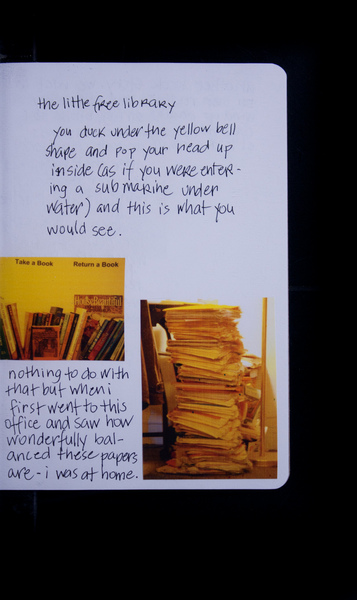 the little free library
you duck under the yellow bell
shape and pop your head up
inside (as if you were enter-
ing a submarine under
water) and this is what you
would see.
Take a Book Return a Book
HouseBeautiful
nothing to do with
that but when i
first went to this
office and saw how
wonderfully bal-
anced these papers
are - i was at home.